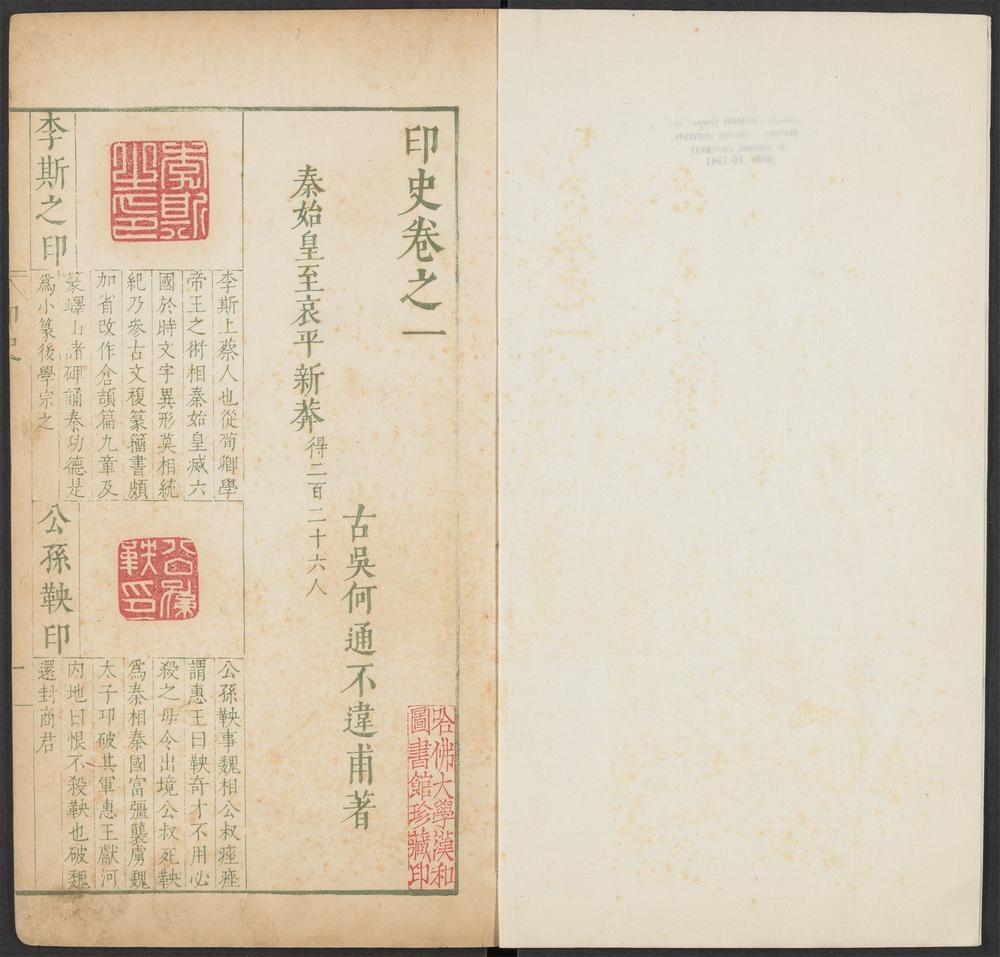 印史卷之一
古吳何通不違甫著
秦始皇至哀平新莽得二百二十六人
李斯之印
李斯上蔡人也從荀卿學
帝王之術相秦始皇滅六
國於時文字異形莫相統
紀乃參古文複篆籀書頗
加省改作倉頡篇九章及
篆嶧山諸碑誦秦功德是
爲小篆後學宗之
李斯之印
公孫鞅印
公孫鞅事魏相公叔痤痤
謂惠王曰鞅奇才不用必
殺之毋令出境公叔死鞅
爲秦相秦國富彊襲虜魏
太子卬破其軍惠王獻河
內地曰恨不殺鞅也破魏
還封商君
公孫鞅印
哈佛大學漢和
圖書館珍藏印
印史
一